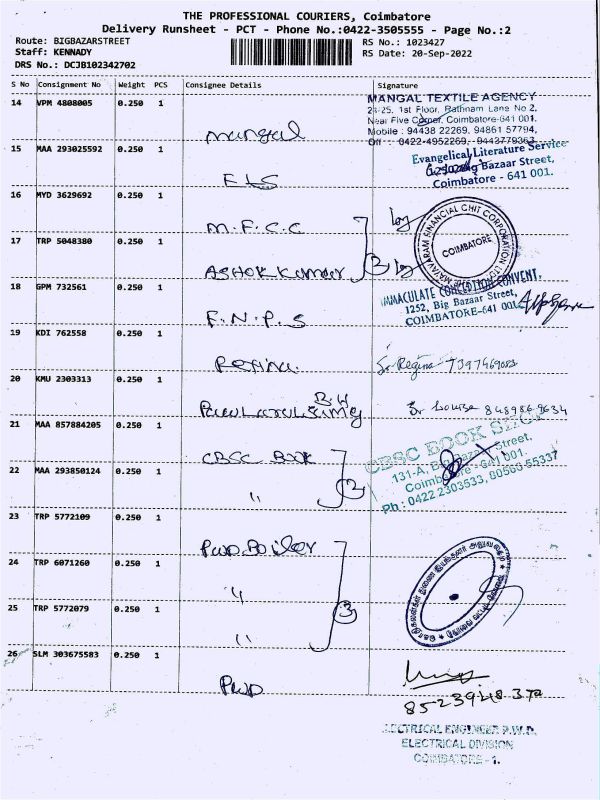 THE PROFESSIONAL COURIERS, Coimbatore
Delivery Runsheet - PCT - Phone No.:0422-3505555 - Page No.:2
Route: BIGBAZARSTREET
RS No.: 1023427
Staff: KENNADY
RS Date: 20-Sep-2022
DRS No.: DCJB102342702
S No Consignment No Weight PCS Consignee Details Signature
14 VPM 4808005 0.250 1 Mangal
MANGAL TEXTILE AGENCY
24-25, 1st Floor, Rathnam Lane No 2,
Near Five Corner, Coimbatore-641 001.
Mobile : 94438 22269, 94861 57794,
Off : 0422-4952269, 9443779363
15 MAA 293025592 0.250 1 ELS
Evangelical Literature Service
Big Bazaar Street,
Coimbatore - 641 001.
16 MYD 3629692 0.250 1 M.F.C.C
17 TRP 5048380 0.250 1 Ashok Kumar 2
MAYAVARAM FINANCIAL CHIT CORPORATION LTD
COIMBATORE
18 GPM 732561 0.250 1 F.N.P.S
IMMACULATE CONCEPTION CONVENT.
1252, Big Bazaar Street,
COIMBATORE-641 001
19 KDI 762558 0.250 1 Regina.
Sr Regina
20 KMU 2303313 0.250 1
Sr Louisa 8489869634
21 MAA 857884205 0.250 1 CBSC Book
22 MAA 293850124 0.250 1 " 2
CBSC BOOK SHOP
131-A, Big Bazaar Street,
Coimbatore - 641 001.
Ph : 0422 2303533, 80560 55337
23 TRP 5772109 0.250 1 PWD. Boiler
24 TRP 6071260 0.250 1 "
25 TRP 5772079 0.250 1 " 3
26 SLM 303675583 0.250 1 PWD
ELECTRICAL ENGINEER P.W.D.
ELECTRICAL DIVISION
COIMBATORE - 1.